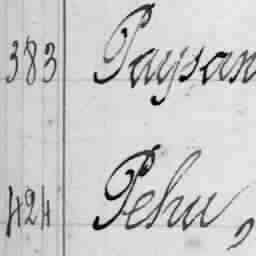 383 Paysan
424 Pehu,